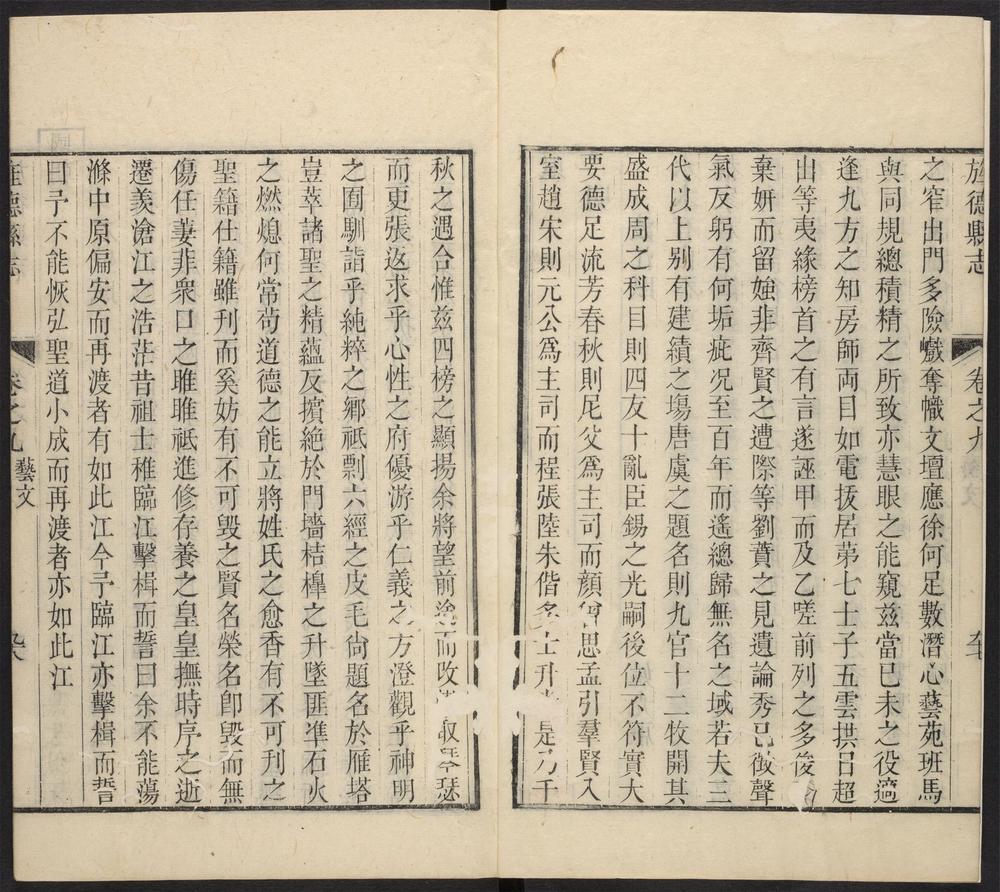 旌德縣志
卷之九
之窄出門多險巇奪幟文壇應徐何足數潛心藝苑班馬
與同規總積精之所致亦慧眼之能窺茲當巳未之役適
逢九方之知房師両目如電抜居苐七士子五雲拱日超
出等夷緣榜首之有言遂誣甲而及乙嗟前列之多後
棄妍而留媸非齊賢之遭際等劉蕡之見遺論秀徵聲
氣反躬有何垢疵况至百年而遙總歸無名之域若夫三
代以上别有建績之塲唐虞之題名則九官十二牧開其
盛成周之科目則四友十亂臣錫之光嗣後位不符實大
要德足流芳春秋則尼父爲主司而顏思孟引羣賢入
室趙宋則元公爲主司而程張陸朱偕多士升是乃千
秋之遇合惟兹四榜之顯揚余將望前而改取琴瑟
而更張返求乎心性之府優游乎仁義之方澄觀乎神明
之囿馴詣乎純粹之鄉祇剽六經之皮毛尙題名於雁塔
豈萃諸聖之精蘊反擯絶於門墻桔槹之升墜匪準石火
之燃熄何常苟道德之能立將姓氏之愈香有不可刋之
聖籍仕籍雖刋而奚妨有不可毁之賢名榮名卽毁而無
傷任萋非衆口之雎雎祗進修存養之皇皇撫時序之逝
遷羨滄江之浩茫昔祖士稚臨江擊楫而誓曰余不能蕩
滌中原偏安而再渡者有如此江今予臨江亦擊楫而誓
曰予不能恢弘聖道小成而再渡者亦如此江
旌德縣志
卷之九
藝文